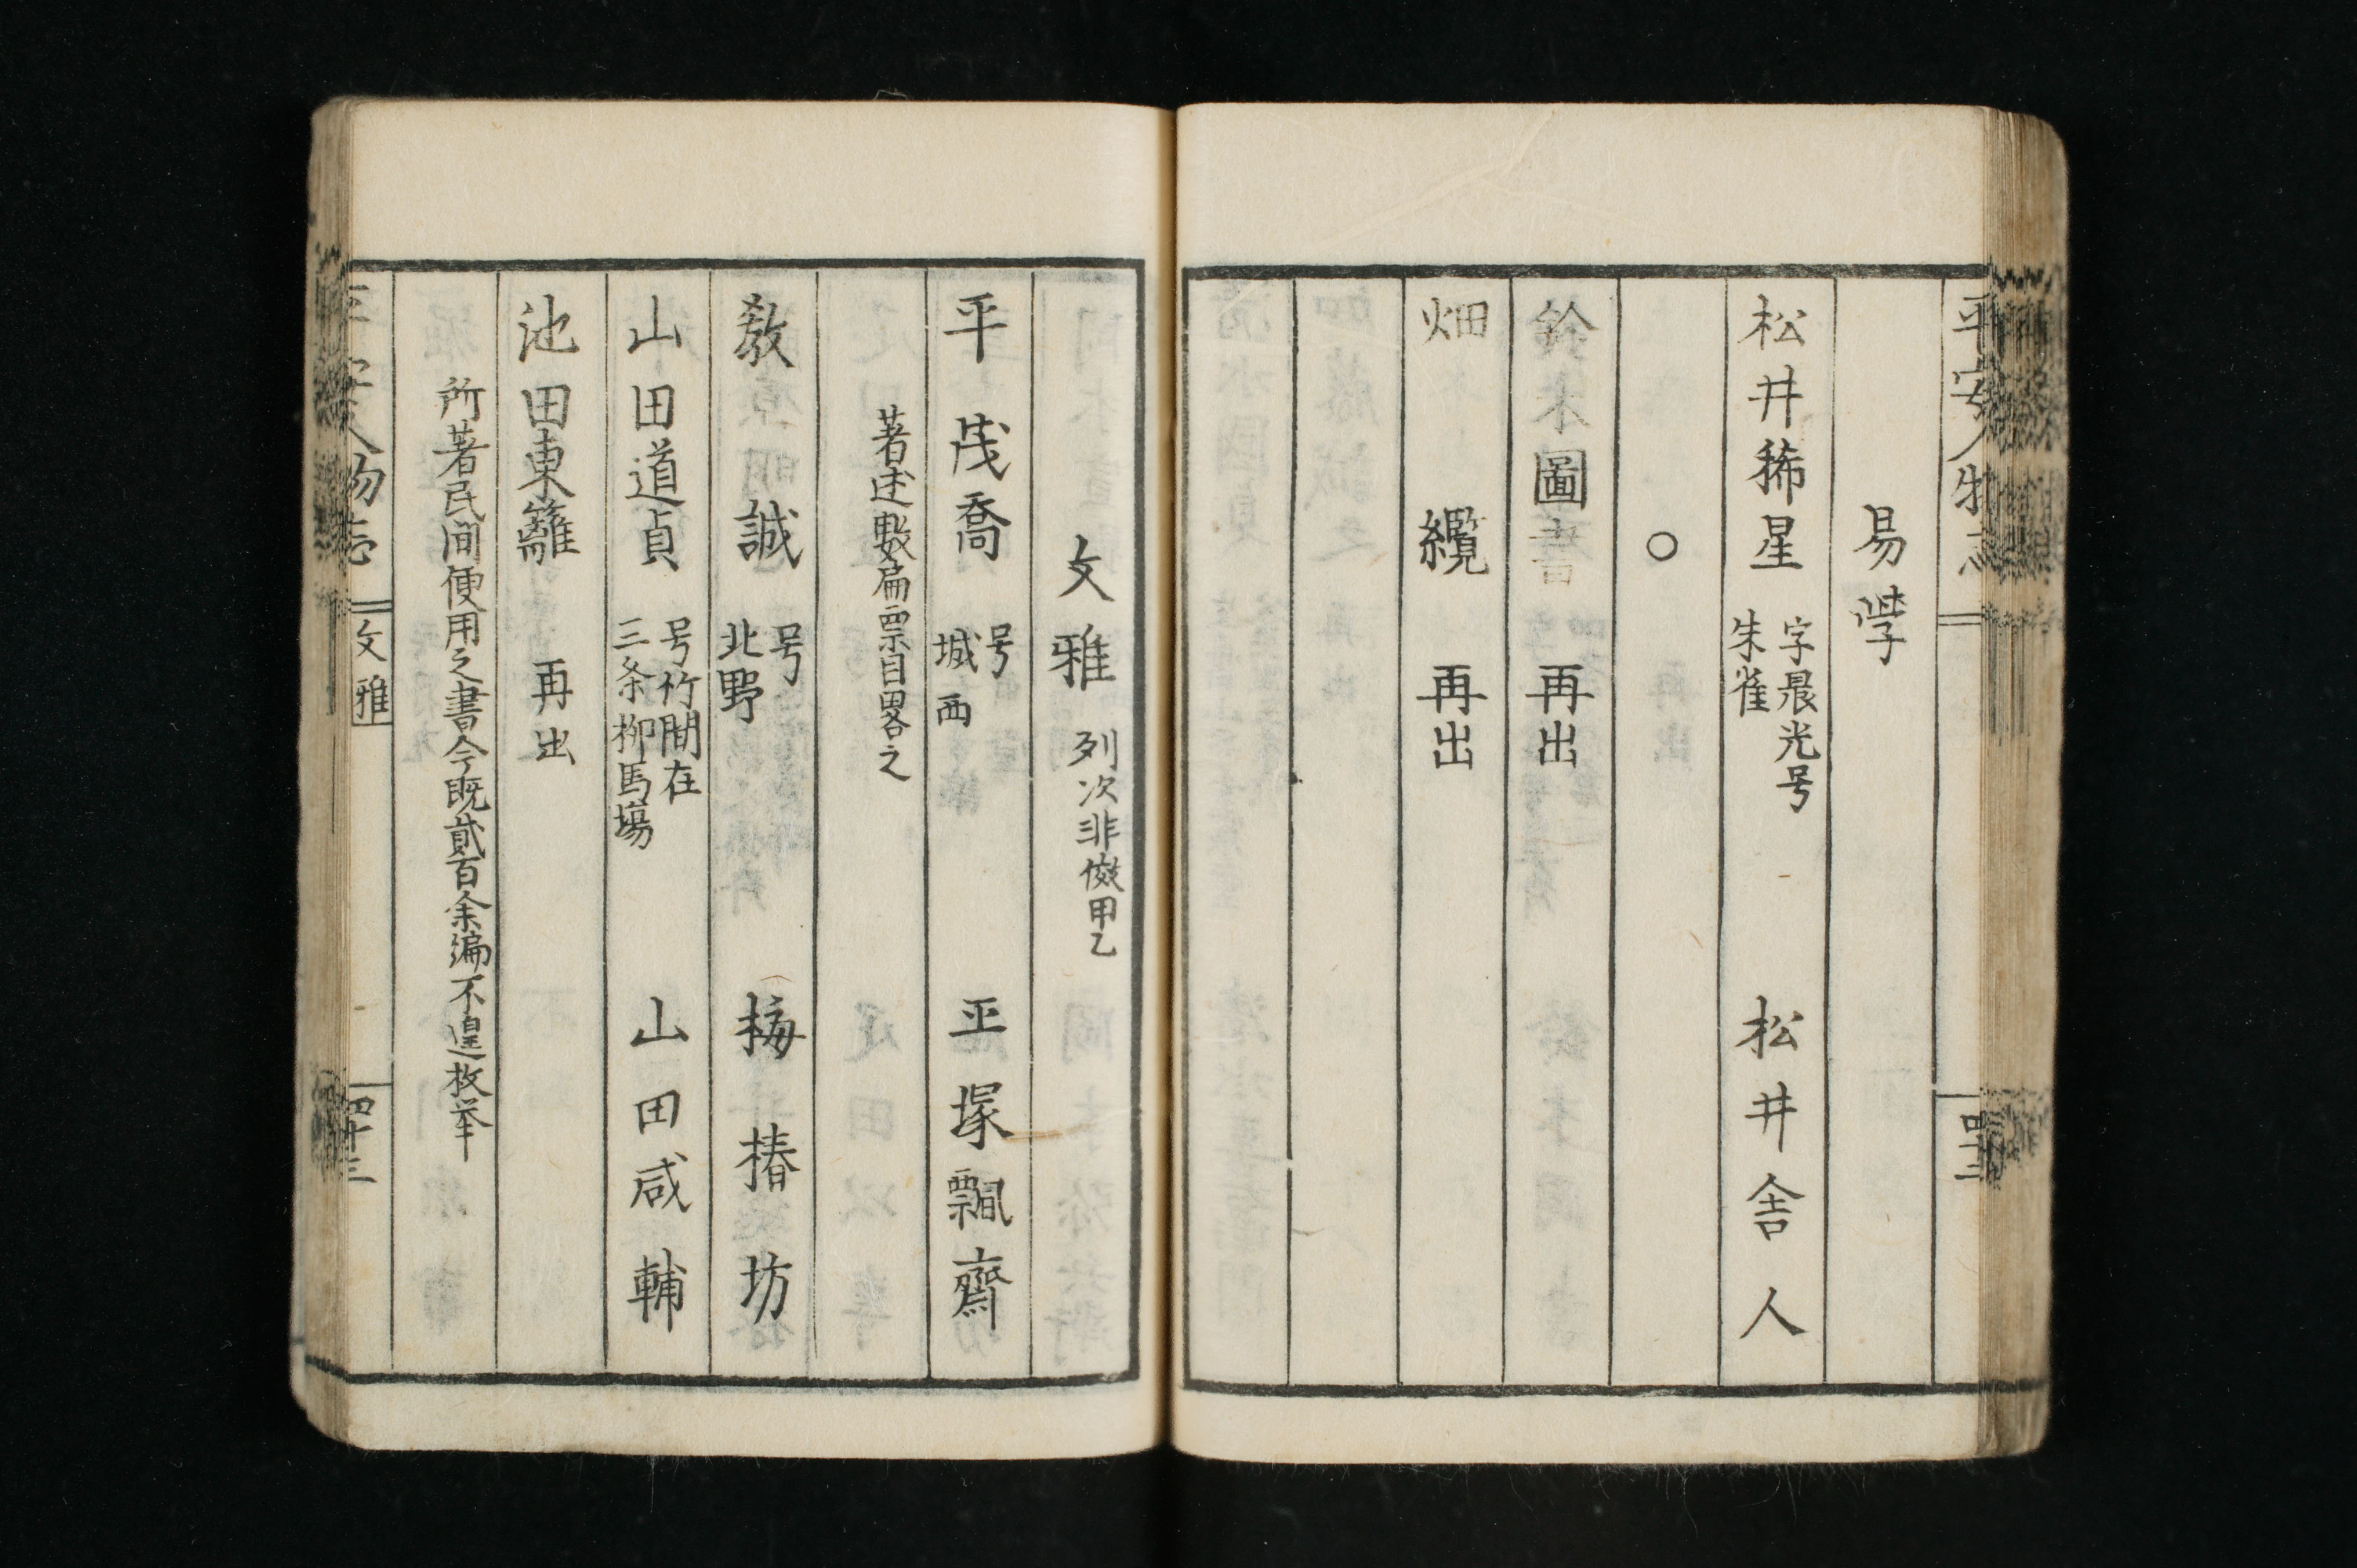 平安人物志
四十二
易学
松井稀星 字晨光号
朱雀 松井舎人
○
鈴木圖書 再出
畑 纜 再出
文雅 列次非傚甲乙
平 茂喬 号
城西 平塚飄齋
著述數扁票目畧之
敎 誠 号
北野 梅椿坊
山田道貞 号竹間在
三条柳馬塲 山田咸輔
池田東籬 再出
所著民間便用之書今既貳百余編不遑枚挙
平安人物志
文雅
四十三